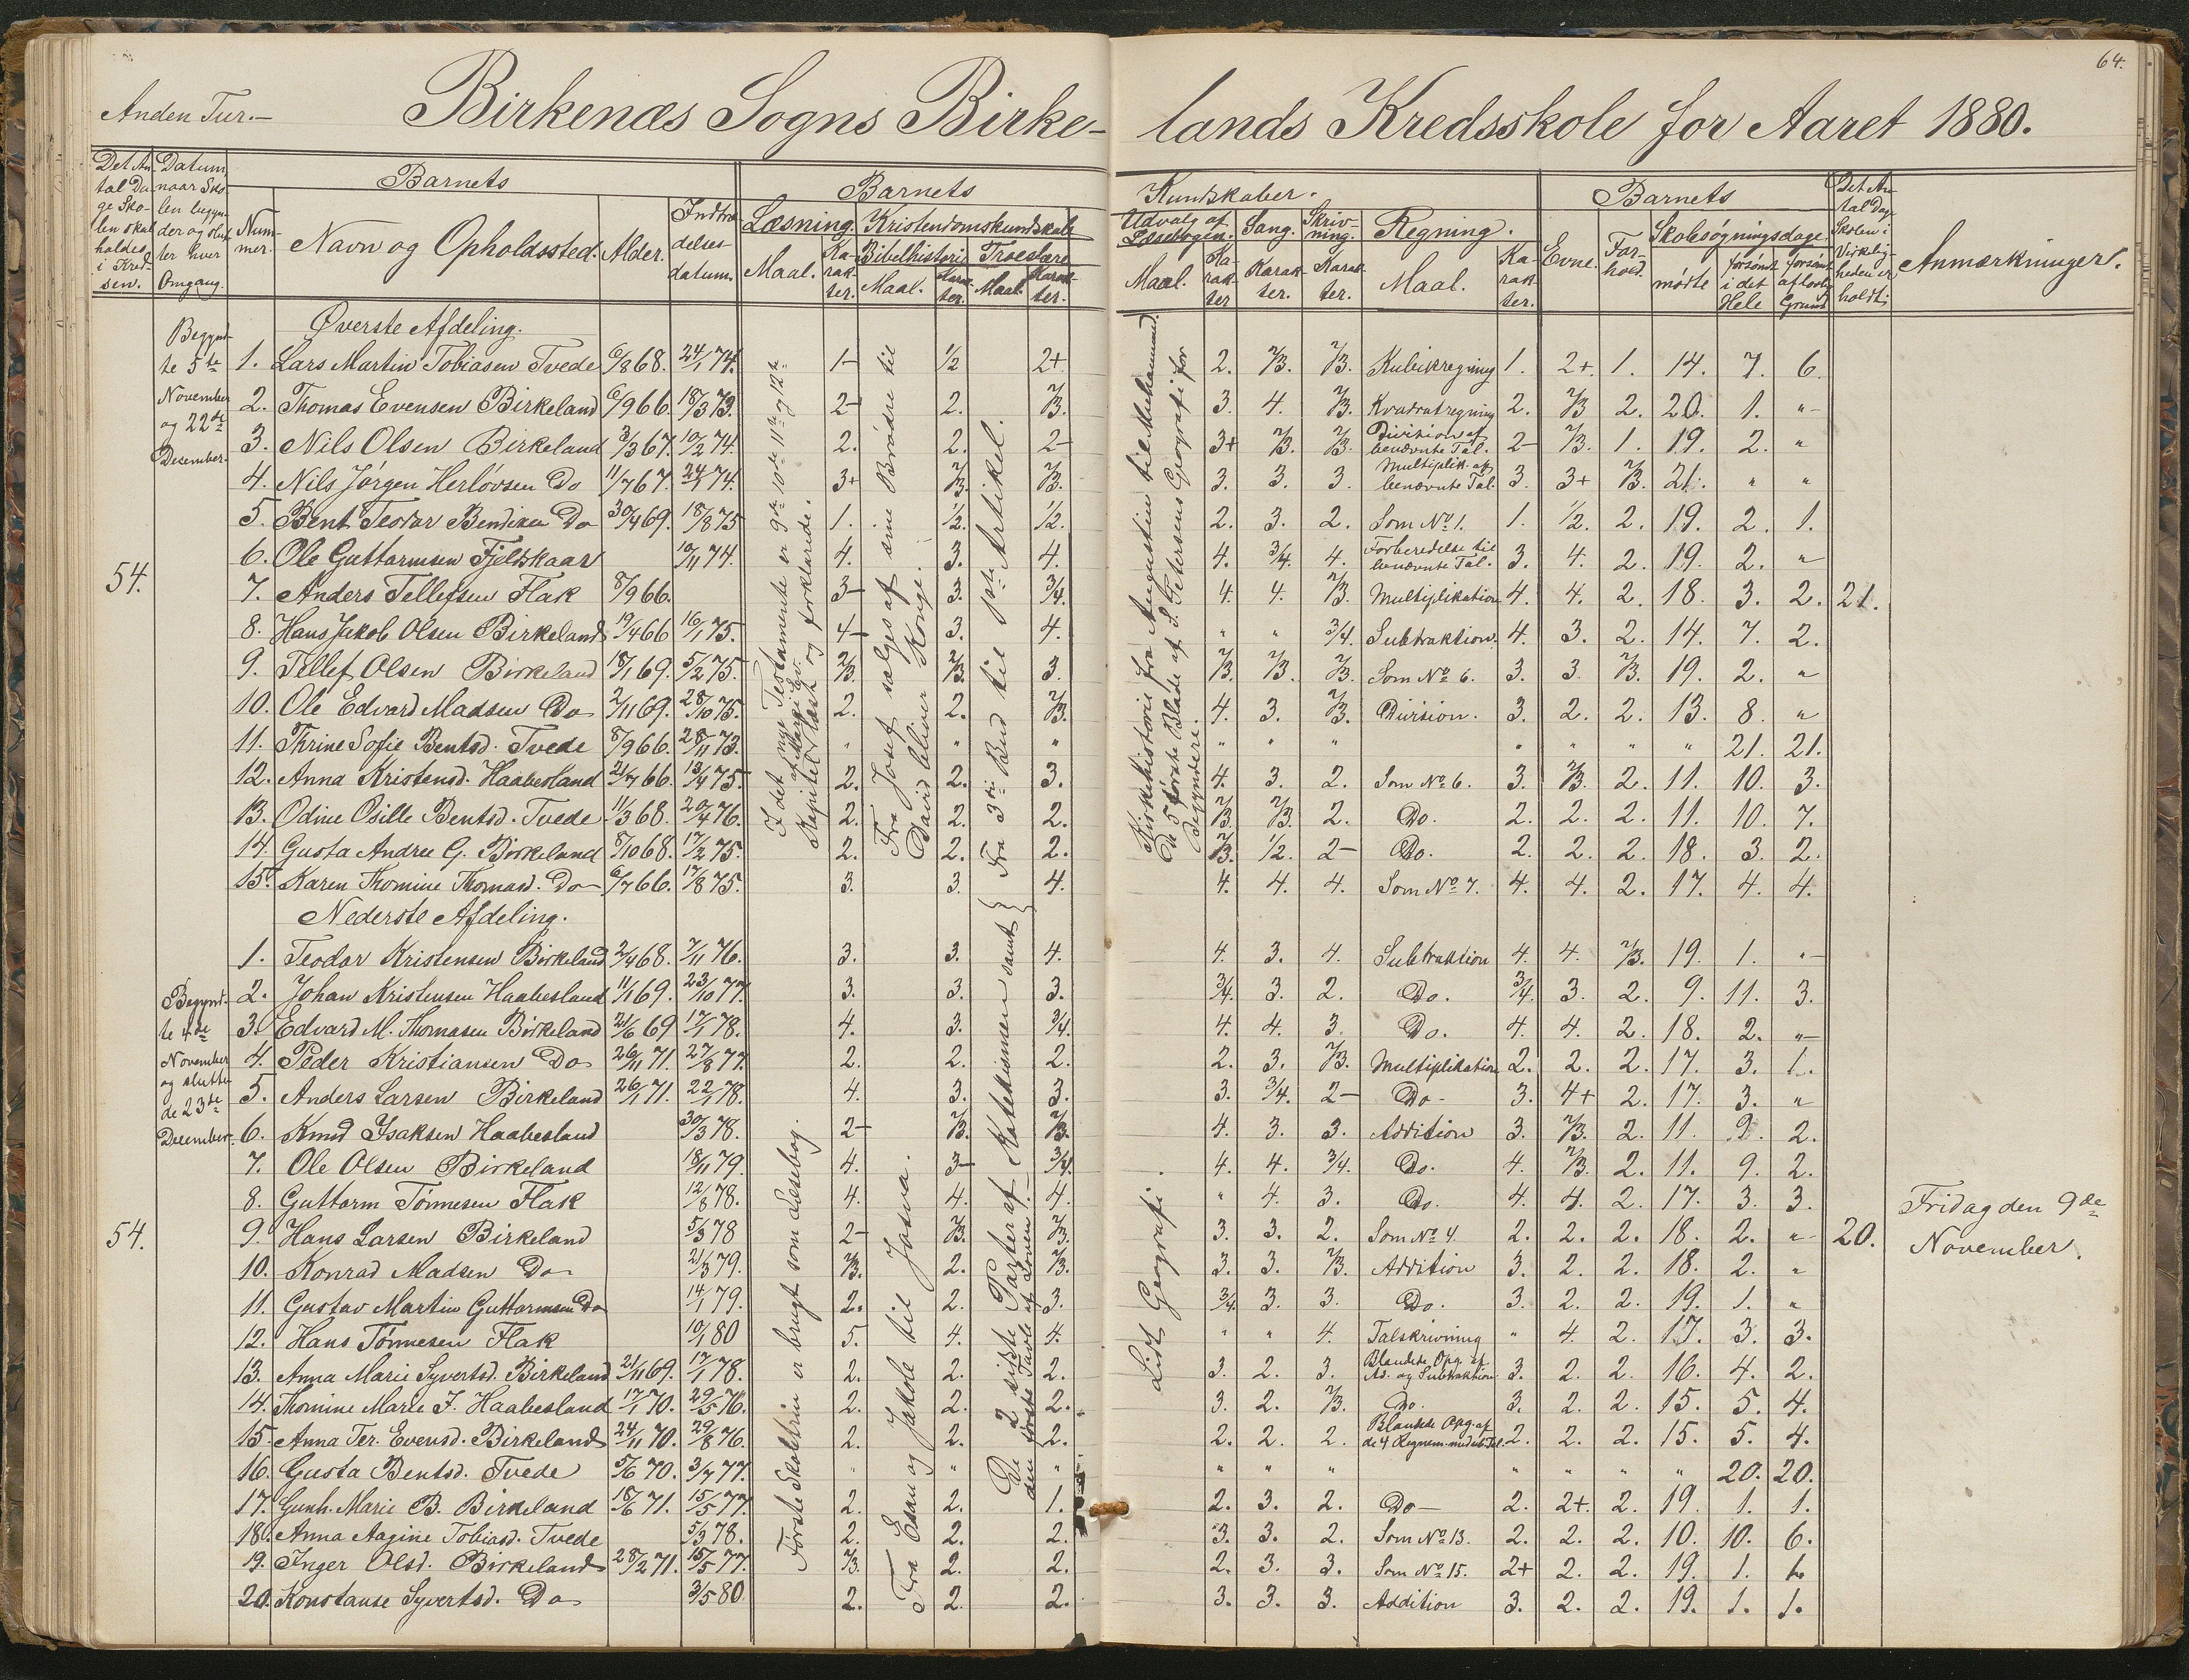 64.
Anden Tur.— Birkenæs Sogns Birke- lands Kredsskole for Aaret 1880.
Det An- tal Da- ge Sko- len skal holdes i Kred- sen.
Datum, naar Sko- len begyn- der og slut- ter hver Omgang.
Barnets
Num- mer. Navn og Opholdssted. Alder. Indtræ- delses- datum.
Barnets Kundskaber.
Læsning. Maal. Ka- rak- ter.
Kristendomskundskab
Bibelhistorie Maal. Karak- ter.
Troeslære Maal. Karak- ter.
Udvalg af Læsebogen. Maal. Ka- rak- ter
Sang. Karak- ter.
Skriv- ning. Karak- ter.
Regning. Maal. Ka- rak- ter.
Barnets
Evne. For- hold. Skolesøgningsdage. mødte forsømt i det Hele forsømt af lovlig Grund
Det An- tal Dage Skolen i Virkelig- heden er holdt:
Anmærkninger.
Øverste Afdeling.
Begynd- te 5te November og 22de Desember.
54.
1. Lars Martin Tobiasen Tvede 6/8 68. 24/1 74. 1- 1/2 2+ 2. 2/3. 2/3. Kubikregning 1. 2+. 1. 14. 7. 6.
2. Thomas Evensen Birkeland 6/9 66. 18/3 73. 2- 2. 2/3. 3. 4. 2/3. Kvadratregning 2. 2/3 2. 20. 1. "
3. Nils Olsen Birkeland 3/3 67. 10/2 74. 2. 2. 2- 3+ 2/3. 2/3. Division af benævnte Tal. 2- 2/3. 1. 19. 2. "
4. Nils Jørgen Herløvsen Do 11/7 67. 24/1 74. 3+ 2/3. 2/3. 3. 3. 3. Multiplik. af benævnte Tal. 3. 3+ 2/3. 21. " "
5. Bent Teodor Bendiksen Do 30/4 69. 18/8 75 1. 1/2. 1/2. 2. 3. 2. Som No 1. 1. 1/2. 2. 19. 2. 1.
6. Ole Guttormsen Fjeldskaar 10/11 74. 4. 3. 4. 4. 3/4. 4. Forberedelse til benævnte Tal. 3. 4. 2. 19. 2. "
7. Anders Tellefsen Flak 8/9 66. 3- 3. 3/4. 4. 4. 2/3. Multiplikation 4. 4. 2. 18. 3. 2. 21.
8. Hans Jakob Olsen Birkeland 19/4 66 16/1 75. 4- 3. 4. " " 3/4. Subtraktion. 4. 3. 2. 14. 7. 2.
9. Tellef Olsen Birkeland 18/1 69. 5/2 75. 2/3. 2/3. 3. 2/3. 2/3. 2/3. Som No 6. 3. 3. 2/3. 19. 2. "
10. Ole Edvard Madsen Do 2/11 69. 28/10 75. 2. 2. 2/3. 4. 3. 2/3. Division. 3. 2. 2. 13. 8. "
11. Thrine Sofie Bentsd. Tvede 8/9 66. 28/11 73. " " " " " " " " " " 21. 21.
12. Anna Kristensd. Haabesland 21/7 66. 13/4 75. 2. 2. 3. 4. 3. 2. Som No 6. 3. 2/3. 2. 11. 10. 3.
13. Odine Osille Bentsd. Tvede 11/3 68. 20/4 76. 2. 2. 2. 2/3. 2/3. 2. Do. 2. 2. 2. 11. 10. 7.
14. Gusta Andrea G. Birkeland 8/10 68. 17/2 75. 2. 2. 2. 2/3. 1/2. 2- Do. 2. 2. 2. 18. 3. 2.
15. Karen Thomine Thomasd. Do 6/7 66. 17/8 75. 3. 3. 4. 4. 4. 4. Som No 7. 4. 4. 2. 17. 4. 4.
I det nye Testamente er 9de 10de 11te og 12te
Kapitel af Marci Ev. læst og forklarede.
Fra Josef sælges af sine Brødre til
David bliver Konge.
Fra 3die Bud til 1ste Artikel.
Kirkehistorie fra Augustin til Muhammed.
De 5 første Blade af S. Petersens Geografi for
Begyndere.
Nederste Afdeling.
Begynd- te 4de November og slutte- de 23de December.
54.
1. Teodor Kristensen Birkeland 2/4 68. 7/11 76. 3. 3. 4. 4. 3. 4. Subtraktion 4. 4. 2/3. 19. 1. "
2. Johan Kristensen Haabesland 11/1 69. 23/10 77. 3. 3. 3. 3/4. 3. 2. Do. 3/4. 3. 2. 9. 11. 3.
3. Edvard M. Thomasen Birkeland 21/6 69 17/1 78. 4. 3. 3/4. 4. 4. 3. Do. 4. 4. 2. 18. 2. "
4. Peder Kristiansen Do 26/11 71. 27/8 77. 2. 2. 2. 2. 3. 2/3. Multiplikation 2. 2. 2. 17. 3. 1.
5. Anders Larsen Birkeland 26/1 71. 22/1 78. 4. 3. 3. 3. 3/4. 2- Do- 3. 4+ 2. 17. 3. "
6. Knud Isaksen Haabesland 30/3 78. 2- 2/3. 2/3. 4. 3. 3. Addition 3. 2/3. 2. 11. 9. 2.
7. Ole Olsen Birkeland 18/11 79. 4. 3- 3/4. 4. 4. 3/4. Do. 4. 2/3. 2. 11. 9. 2.
8. Guttorm Tønnesen Flak 12/8 78. 4. 4. 4. " 4. 3. Do. 4. 4. 2. 17. 3. 3.
9. Hans Larsen Birkeland 5/3 78 2- 2/3. 2/3. 3. 3. 2. Som No 4. 2. 2. 2. 18. 2. " 20. Fridag den 9de November.
10. Konrad Madsen Do 21/3 79. 2/3. 2. 2/3. 3. 3. 2/3. Addition 3. 2. 2. 18. 2. "
11. Gustav Martin Guttormsen Do 14/1 79. 2. 2. 3. 3/4. 3. 3. Do. 3. 2. 2. 19. 1. "
12. Hans Tønnesen Flak 10/1 80 5. 4. 4. " " 4. Talskrivning " 4. 2. 17. 3. 3.
13. Anna Marie Syvertsd. Birkeland 21/11 69. 17/1 78. 2. 2. 2. 3. 2. 3. Blandede Opg. af Ad. og Subtraktion 3. 2. 2. 16. 4. 2.
14. Thomine Marie J. Haabesland 17/1 70. 29/5 76. 2. 2. 2. 3. 2. 2/3. Do. 3. 2. 2. 15. 5. 4.
15. Anna Ter. Evensd. Birkeland 24/11 70. 29/8 76. 2. 2. 2. 2. 2. 2. Blandede Opg. af de 4 Regnem. 2. 2. 2. 15. 5. 4.
16. Gusta Bentsd. Tvede 5/6 70. 3/7 77. " " " " " " " " " " 20. 20.
17. Gunh. Marie B. Birkeland 18/6 71. 15/5 77. 2. 2. 1. 2. 3. 2. Do- 2. 2+. 2. 19. 1. 1.
18. Anna Aagine Tobiasd. Tvede 5/3 78. 2. 2. 2. 3. 3. 2. Som No 13. 2. 2. 2. 10. 10. 6.
19. Inger Olsd. Birkeland 28/2 71. 15/5 77. 2/3. 2. 2. 2. 3. 3. Som No 15. 2+ 2. 2. 19. 1.
20. Konstanse Syvertsd. Do 3/5 80. 2. 2. 2. 3. 3. 3. Addition 3. 2. 2. 19. 1. 1.
Første Skoletrin er brugt som Læsebog.
Fra Esau og Jakob til Josva.
De 2 sidste Parter af Katekismen samt
den første Tavle af Loven.
Lidt Geografi.